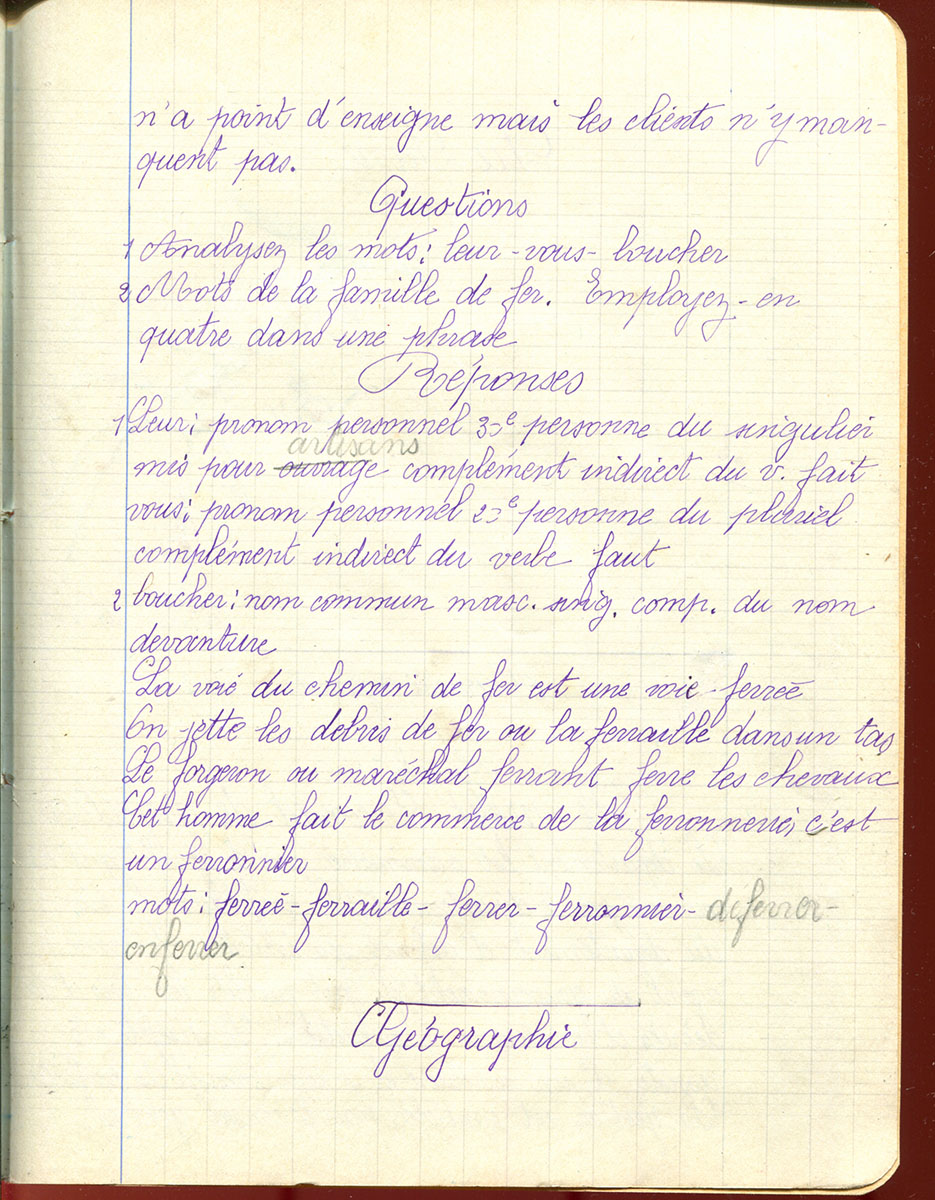 n'a point d'enseigne mais les clients n'y man-
quent pas.
Questions
1 Analysez les mots : leur - vous - boucher
2 Mots de la famille de fer. Employez-en
quatre dans une phrase
Réponses
1 Leur : pronom personnel 3e personne du singulier
artisans
mis pour ouvrage complément indirect du v. fait
vous : pronom personnel 2e personne du pluriel
complément indirect du verbe faut
2 boucher : nom commun masc. sing. comp. du nom
devanture
La voie du chemin de fer est une voie-ferrée
On jette les debris de fer ou la ferraille dans un tas
Le forgeron ou maréchal ferrant ferre les chevaux
Cet homme fait le commerce de la ferronnerie, c'est
un ferronnier
mots : ferrée - ferraille - ferrer - ferronnier - déferrer -
enferrer
Géographie